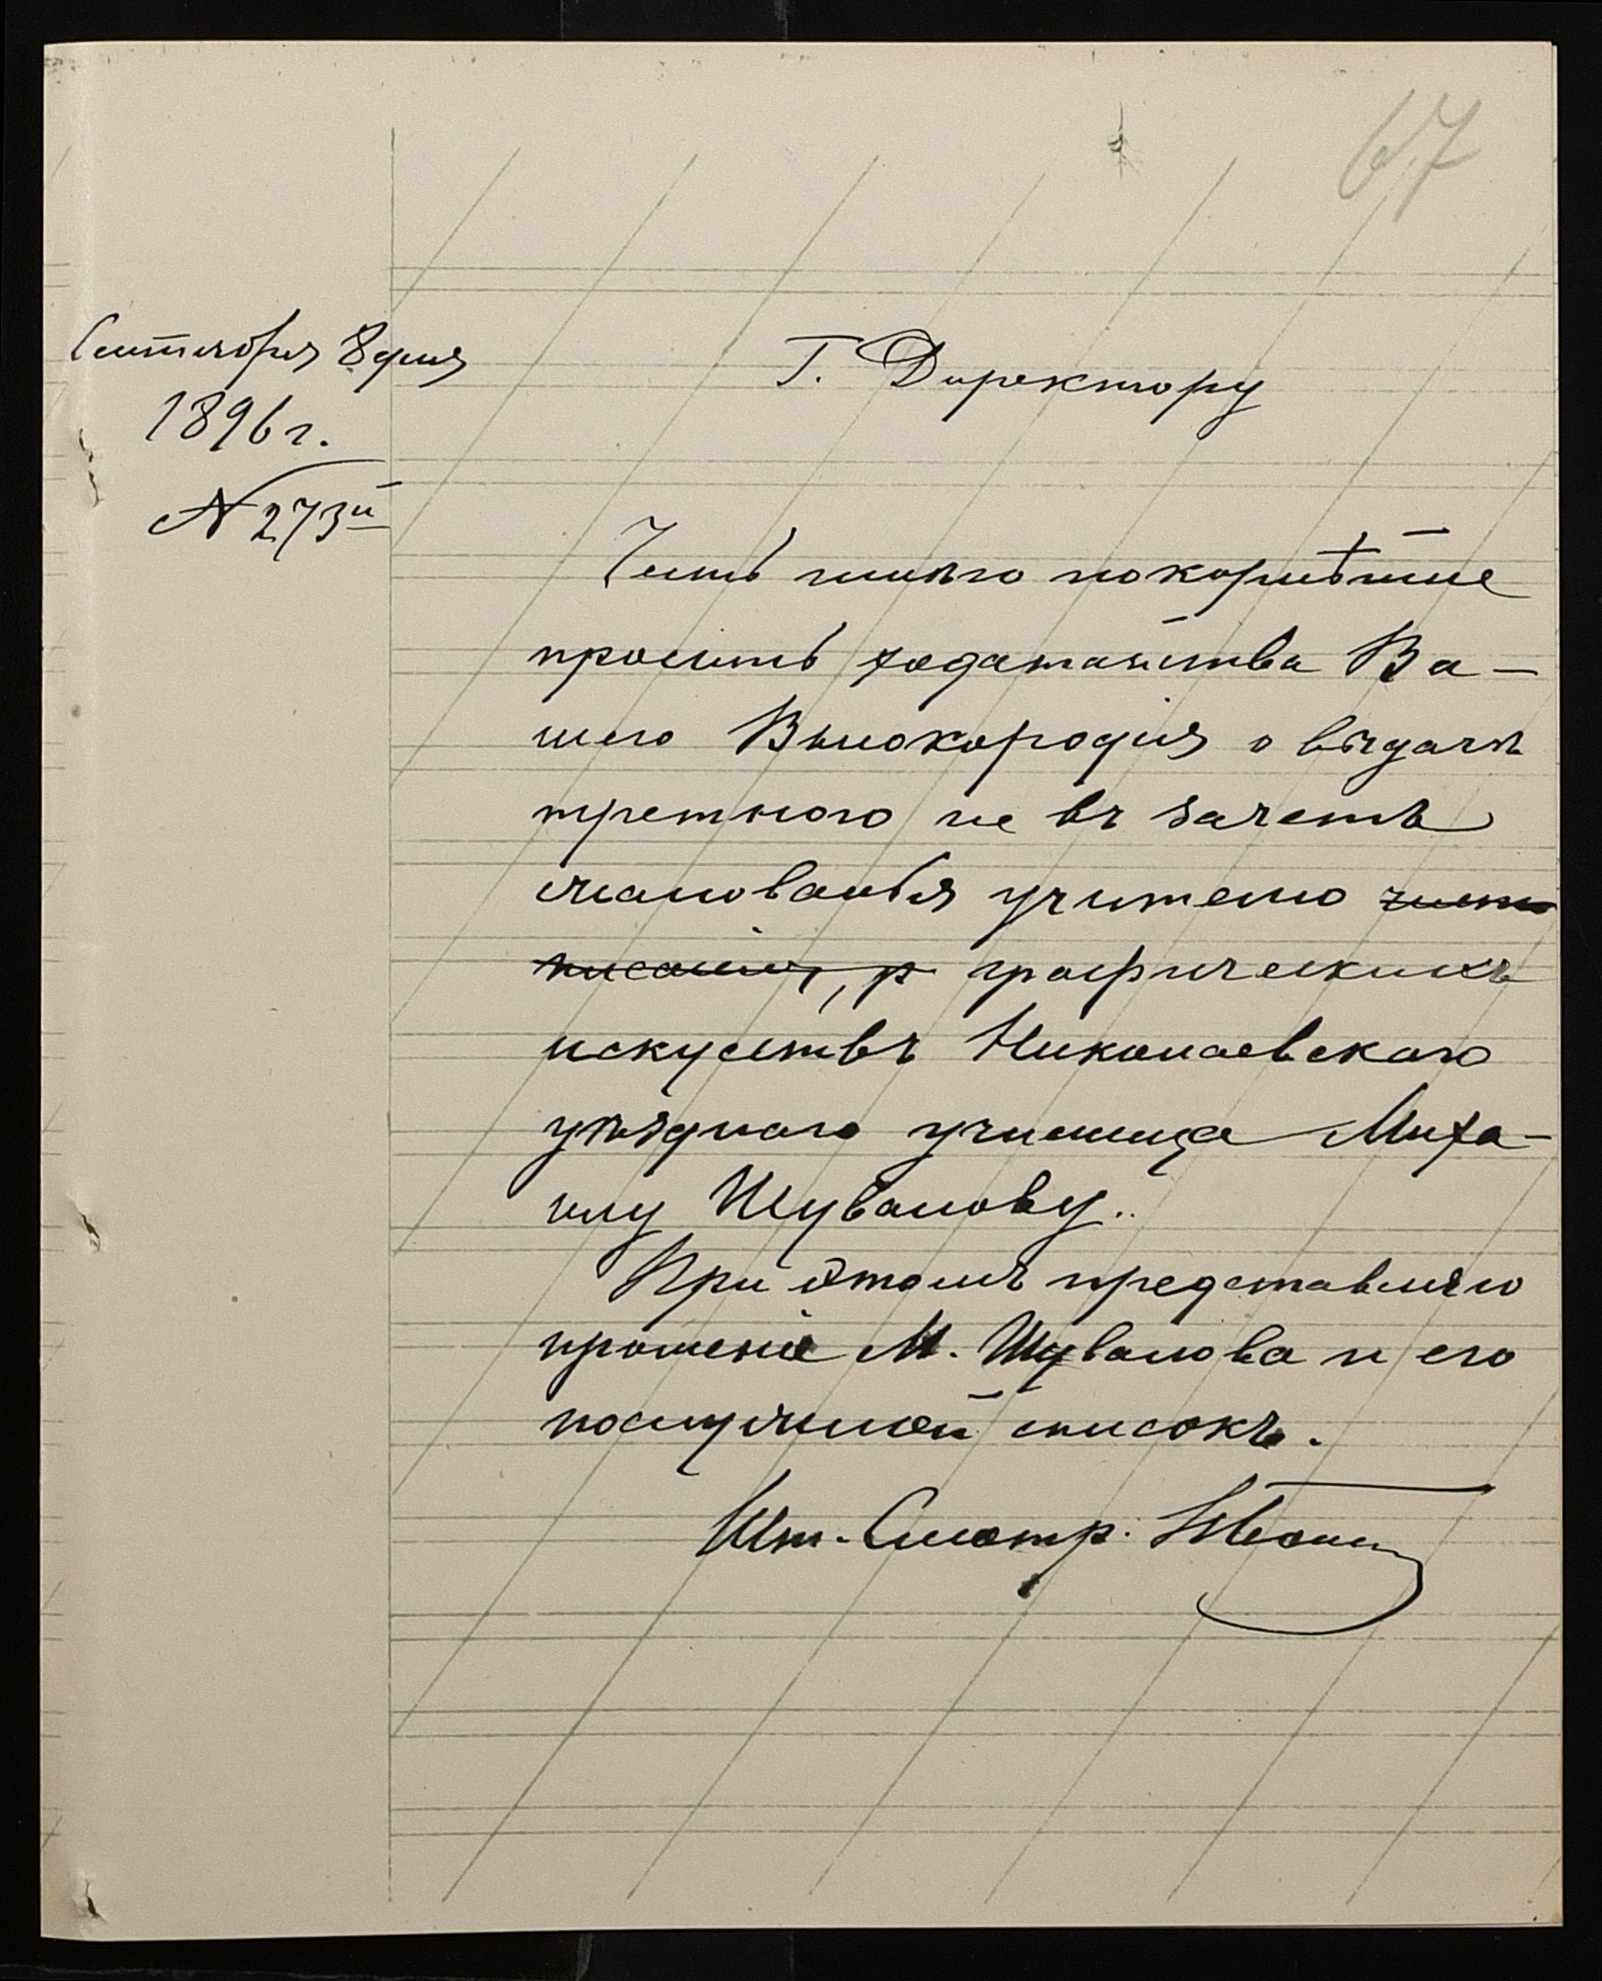 67
Сентября 8 дня
1896 г.
№ 273й
Г. Директору
Честь имѣю покорнѣйше
просить ходатайства Ва-
шего Высокородія о выдачѣ
третного не въ зачетъ
жалованья учителю чисто
писанія, р графическихъ
искуствъ Николаевскаго
уѣзднаго училища Миха-
илу Шувалову..
При этомъ представляю
прошеніе М. Шувалова и его
послужной списокъ.
Шт. Смотр.